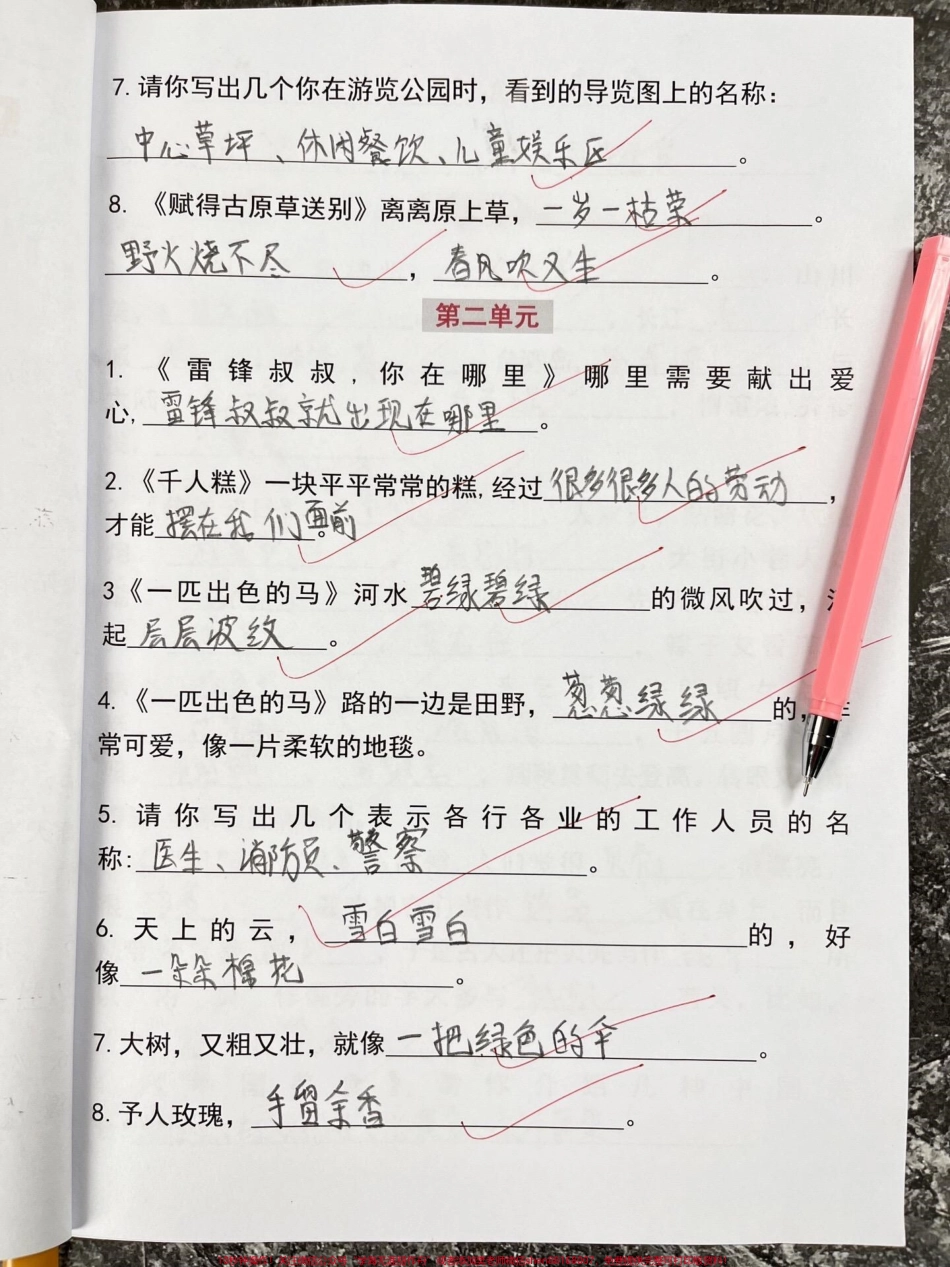 7. 请你写出几个你在游览公园时，看到的导览图上的名称：
中心草坪、休闲餐饮、儿童娱乐区。
8. 《赋得古原草送别》离离原上草，一岁一枯荣。
野火烧不尽，春风吹又生。
第二单元
1. 《雷锋叔叔，你在哪里》哪里需要献出爱
心,雷锋叔叔就出现在哪里。
2. 《千人糕》一块平平常常的糕,经过很多很多人的劳动，
才能摆在我们面前。
3《一匹出色的马》河水碧绿碧绿的微风吹过，
起层层波纹。
4. 《一匹出色的马》路的一边是田野，葱葱绿绿的，
常可爱，像一片柔软的地毯。
5. 请你写出几个表示各行各业的工作人员的名
称:医生、消防员、警察。
6. 天上的云，雪白雪白的，好
像一朵朵棉花。
7. 大树，又粗又壮，就像一把绿色的伞。
8. 予人玫瑰，手留余香。